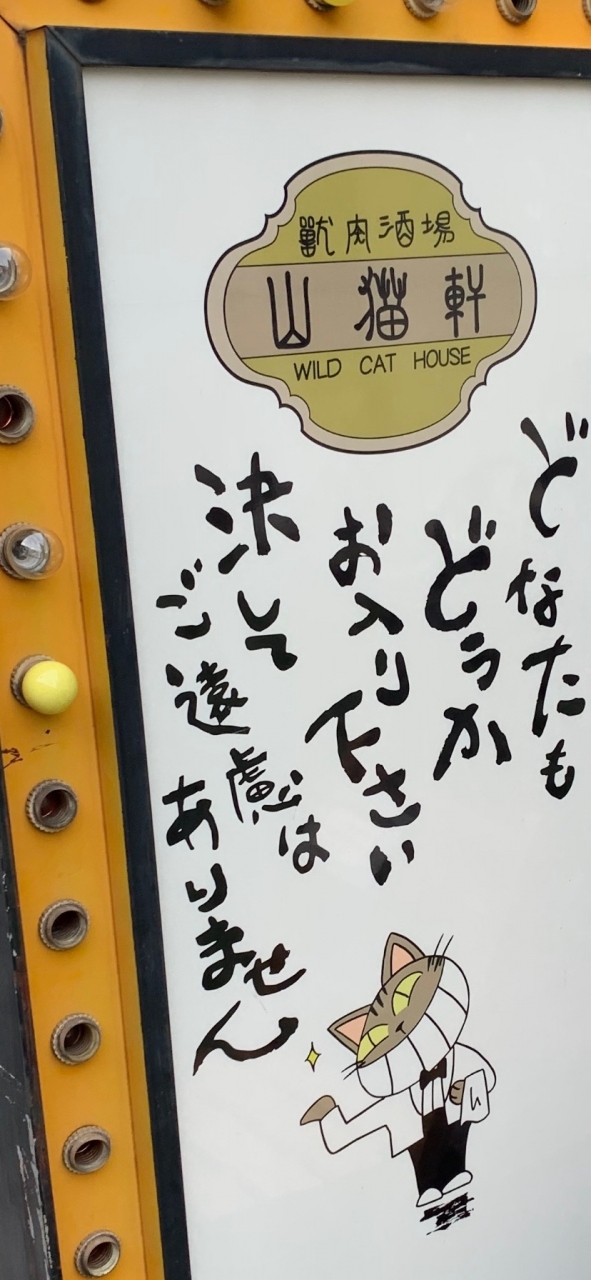 獣肉酒場
山猫軒
WILD CAT HOUSE
どなたも
どうか
お入り下さい
決して
ご遠慮は
ありません